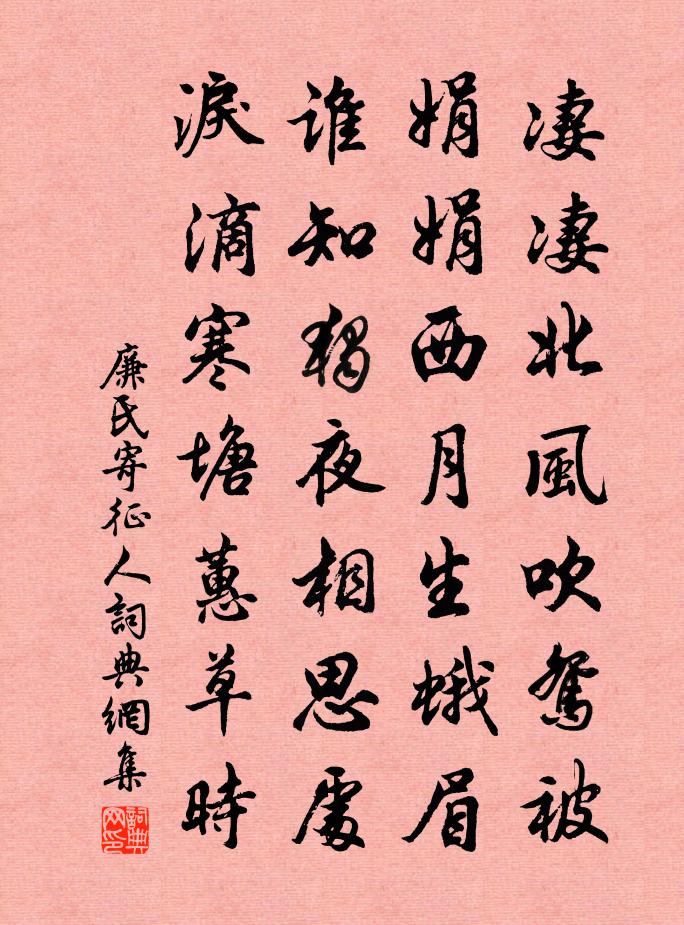 淒淒北風吹鴛被
娟娟西月生蛾眉
誰知獨夜相思處
淚滴寒塘蕙草時
廉氏寄征人詞典網集
詞典網印